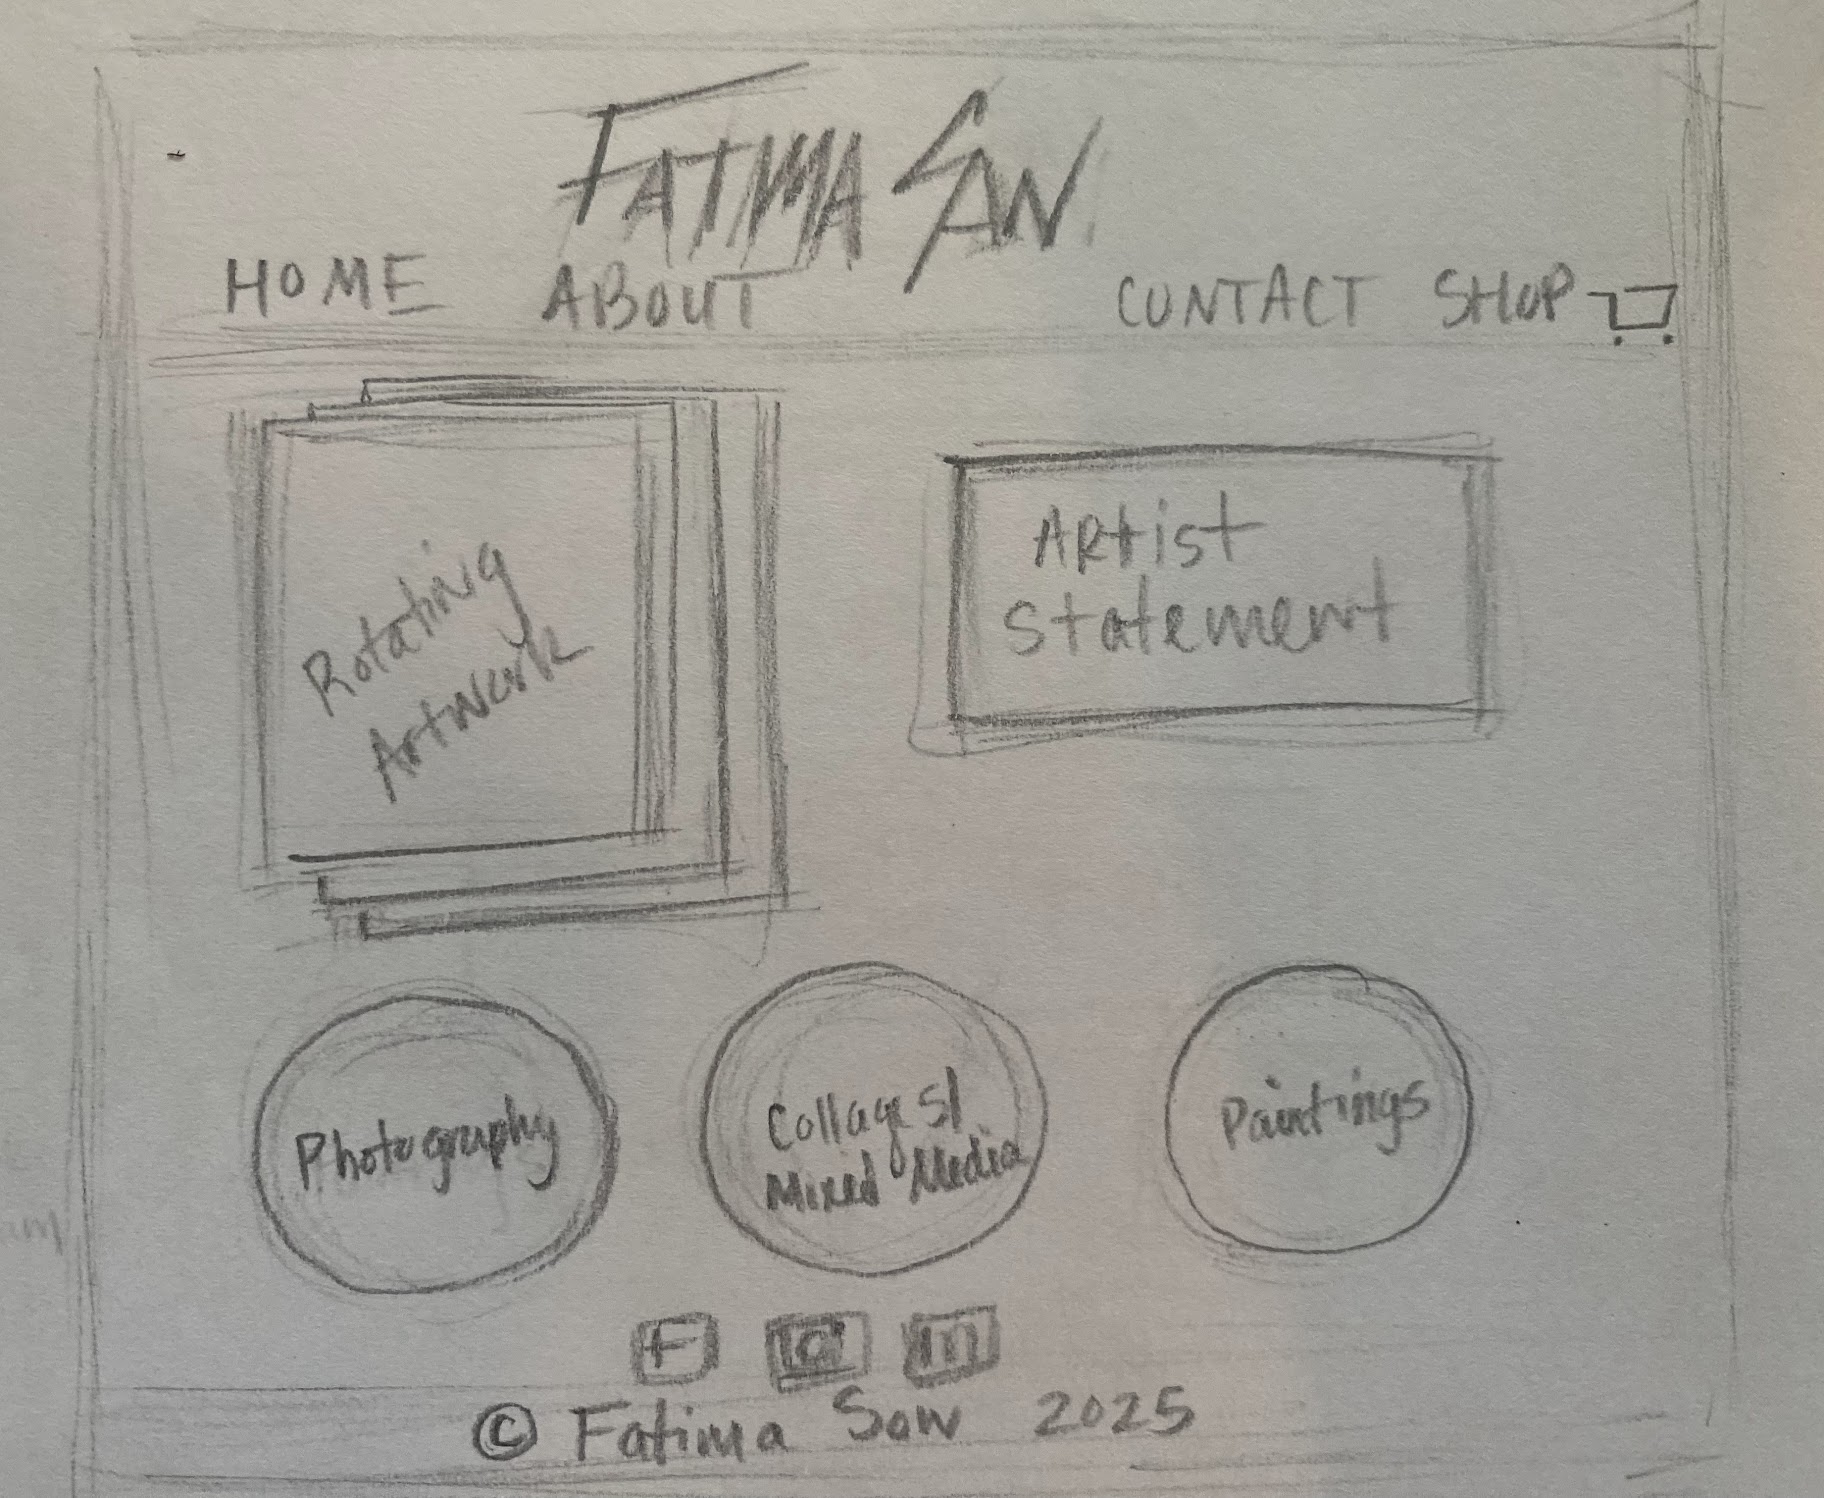 FATIMA SOW
HOME ABOUT CONTACT SHOP
Rotating
Artwork
Artist
Statement
Photography
Collages/
Mixed Media
Paintings
f in
© Fatima Sow 2025